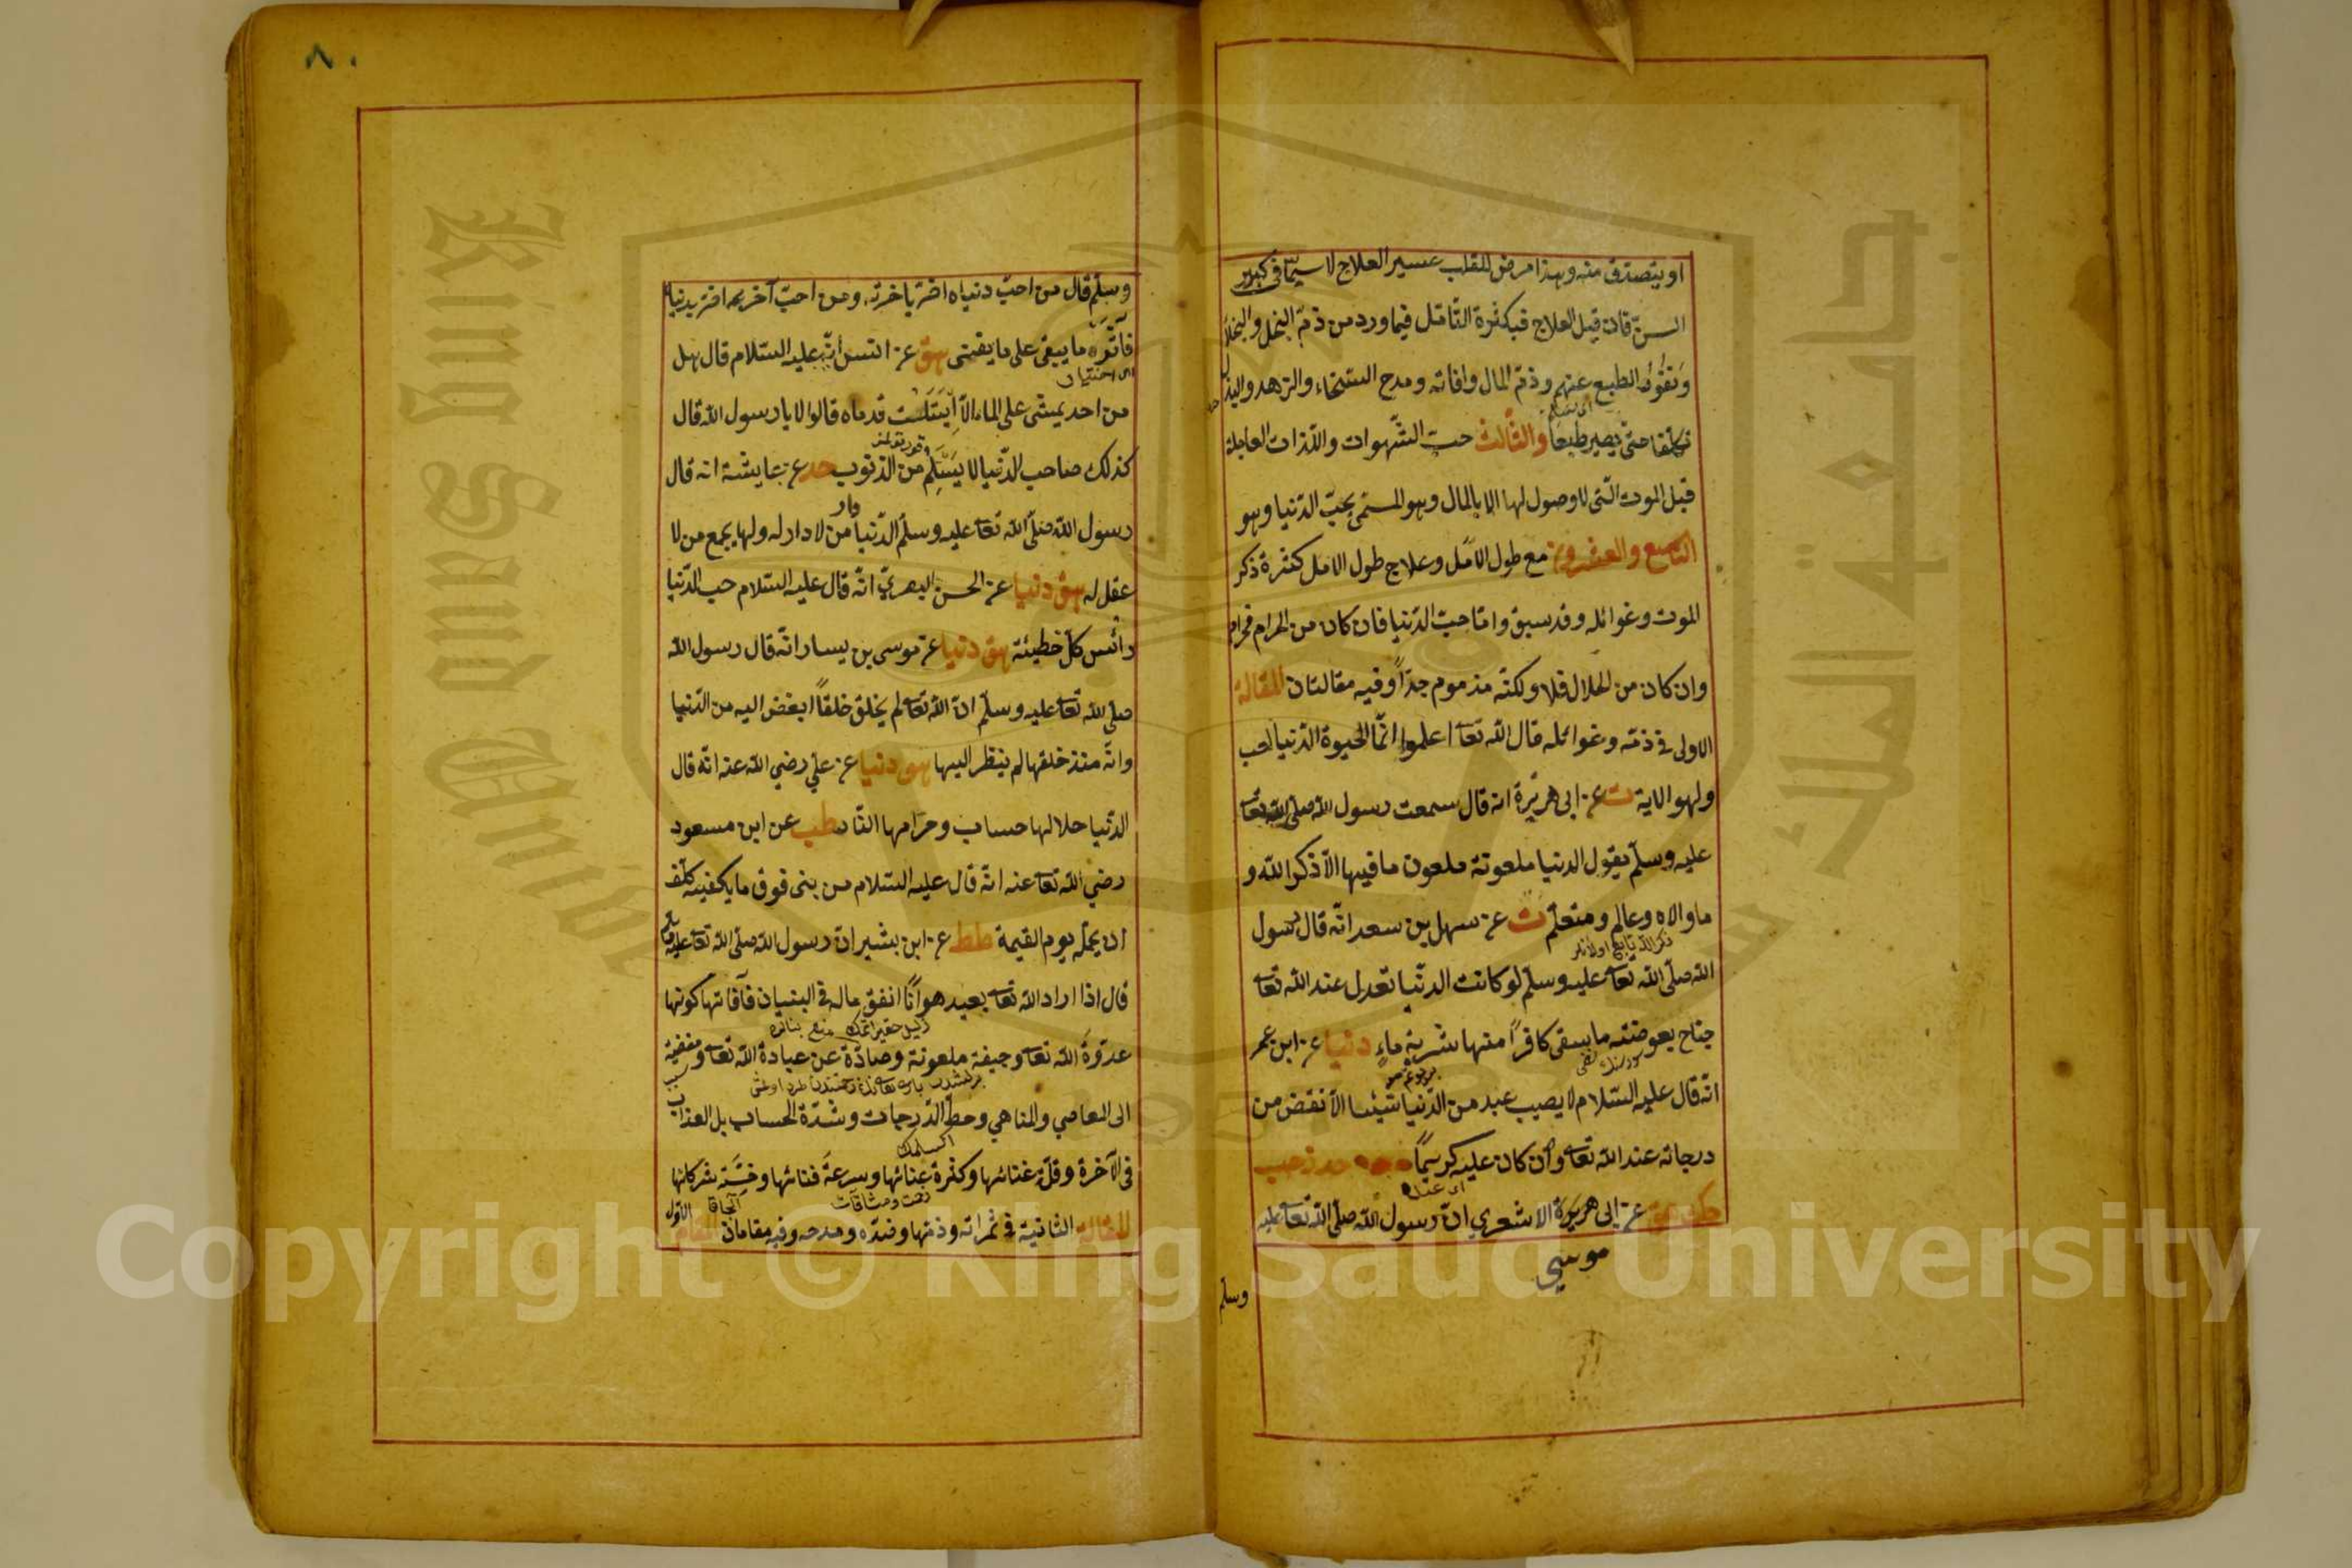 او يتصدق منه وهذا مرض للقلب عسير العلاج لا سيما في كبير
السن فان قبل العلاج فبكثرة التأمل فيما ورد من ذم البخل والبخلاء
ونفرة الطبع عنهم وذم المال وافاته ومدح السخاء والزهد والبذل
تكلفا حتى يصير طبعا والثالث حب الشهوات واللذات العاجلة
قبل الموت التي لا وصول لها الا بالمال وهو المسمى بحب الدنيا وهو
التاسع والعشرون مع طول الامل وعلاج طول الامل كثرة ذكر
الموت وغوائله وقد سبق واما حب الدنيا فان كان من الحرام فحرام
وان كان من الحلال فلا ولكنه مذموم جدا وفيه مقالتان المقالة
الاولى في ذمه وغوائله قال الله تعا اعلموا انما الحيوة الدنيا لعب
ولهو الاية ت عن ابى هريرة انه قال سمعت رسول الله صلى الله تعا
عليه وسلم يقول الدنيا ملعونة ملعون ما فيها الا ذكر الله و
ما والاه وعالم ومتعلم ت عن سهل بن سعد انه قال رسول
الله صلى الله تعا عليه وسلم لو كانت الدنيا تعدل عند الله تعا
جناح بعوضته ما يسقى كافرا منها شربة ماء دنيا عن ابن عمر
انه قال عليه السلام لا يصيب عبد من الدنيا شيئا الا نقض من
درجاته عند الله تعا وان كان عليه كريما حد ز حب
عن ابى هريرة الاشعري ان رسول الله صلى الله تعا عليه
موسى
وسلم
٨٠
وسلم قال من احب دنياه اضر باخرته ومن احب آخرته اضر بدنياه
فآثروا ما يبقى على ما يفنى هق عن انس انه عليه السلام قال هل
اى اختيار
من احد يمشي على الماء الا ابتلت قدماه قالوا لا يا رسول الله قال
كذلك صاحب الدنيا لا يسلم من الذنوب حد عن عايشة انه قال
رسول الله صلى الله تعا عليه وسلم الدنيا دار من لا دار له ولها يجمع من لا
عقل له هق دنيا عن الحسن البصري انه قال عليه السلام حب الدنيا
رأس كل خطيئة هق دنيا عن موسى بن يسار انه قال رسول الله
صلى الله تعا عليه وسلم ان الله تعا لم يخلق خلقا ابغض اليه من الدنيا
وانه منذ خلقها لم ينظر اليها هق دنيا عن علي رضي الله عنه انه قال
الدنيا حلالها حساب وحرامها النار طب عن ابن مسعود
رضي الله تعا عنه انه قال عليه السلام من بنى فوق ما يكفيه كلف
ان يحمله يوم القيمة طط عن ابن بشير ان رسول الله صلى الله تعا عليه وسلم
قال اذا اراد الله تعا بعبد هوانا انفق ماله في البنيان فآفاتها كونها
عدوة الله تعا وجيفة ملعونة وصادة عن عبادة الله تعا ومفضية
الى المعاصي والمناهي وحط الدرجات وشدة الحساب بل العذاب
في الآخرة وقلة غنائها وكثرة عنائها وسرعة فنائها وخسة شركائها
المقالة الثانية في ثمراته وذمها وضده ومدحه وفيه مقامان المقام
الاول